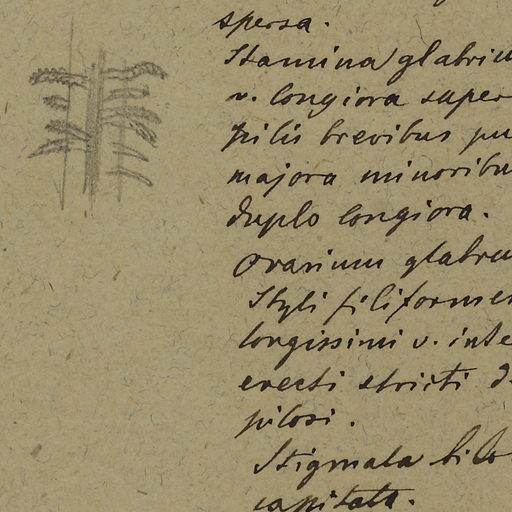 spersa.
Stamina glabriu
v. longiora super
pilis brevibus pu
majora minoribu
duplo longiora.
Ovarium glabru
Styli filiformes
longissimi v. inte
erecti stricti d
pilosi.
Stigmata bilo
capitata.